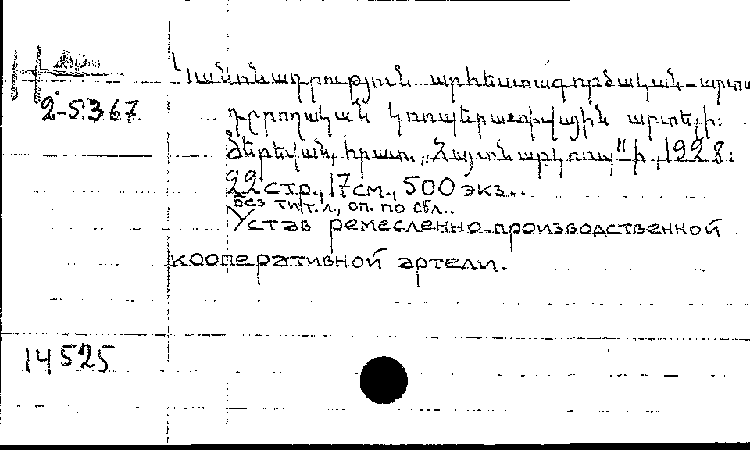 Կանոնադրություն արհեստագործական-արտա
դրողական կոոպերատիվային արտելի:
Յերեվան, հրատ. „Հայտնարկոոպ"ի, 1928:
2-5367
22 стр., 17 см., 500 экз..
Без тит. л., оп. по обл..
Устав ремесленно-производственной
кооперативной артели.
14525